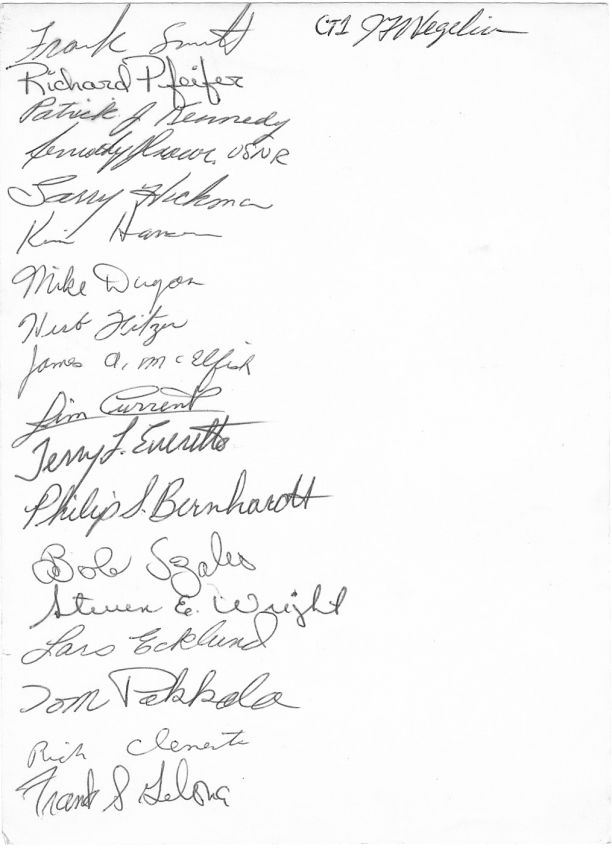 Frank Smith
CT1
Richard Pfeifer
Patrick J Kennedy
Timothy USNR
Larry Hickman
Kim
Mike Dugan
Herb Fitzer
James A. McElfish
Jim Current
Terry L. Everetts
Philip S. Bernhardt
Bob
Steven E. Wright
Lars Ecklund
Tom Pakkala
Rich Clements
Frank S